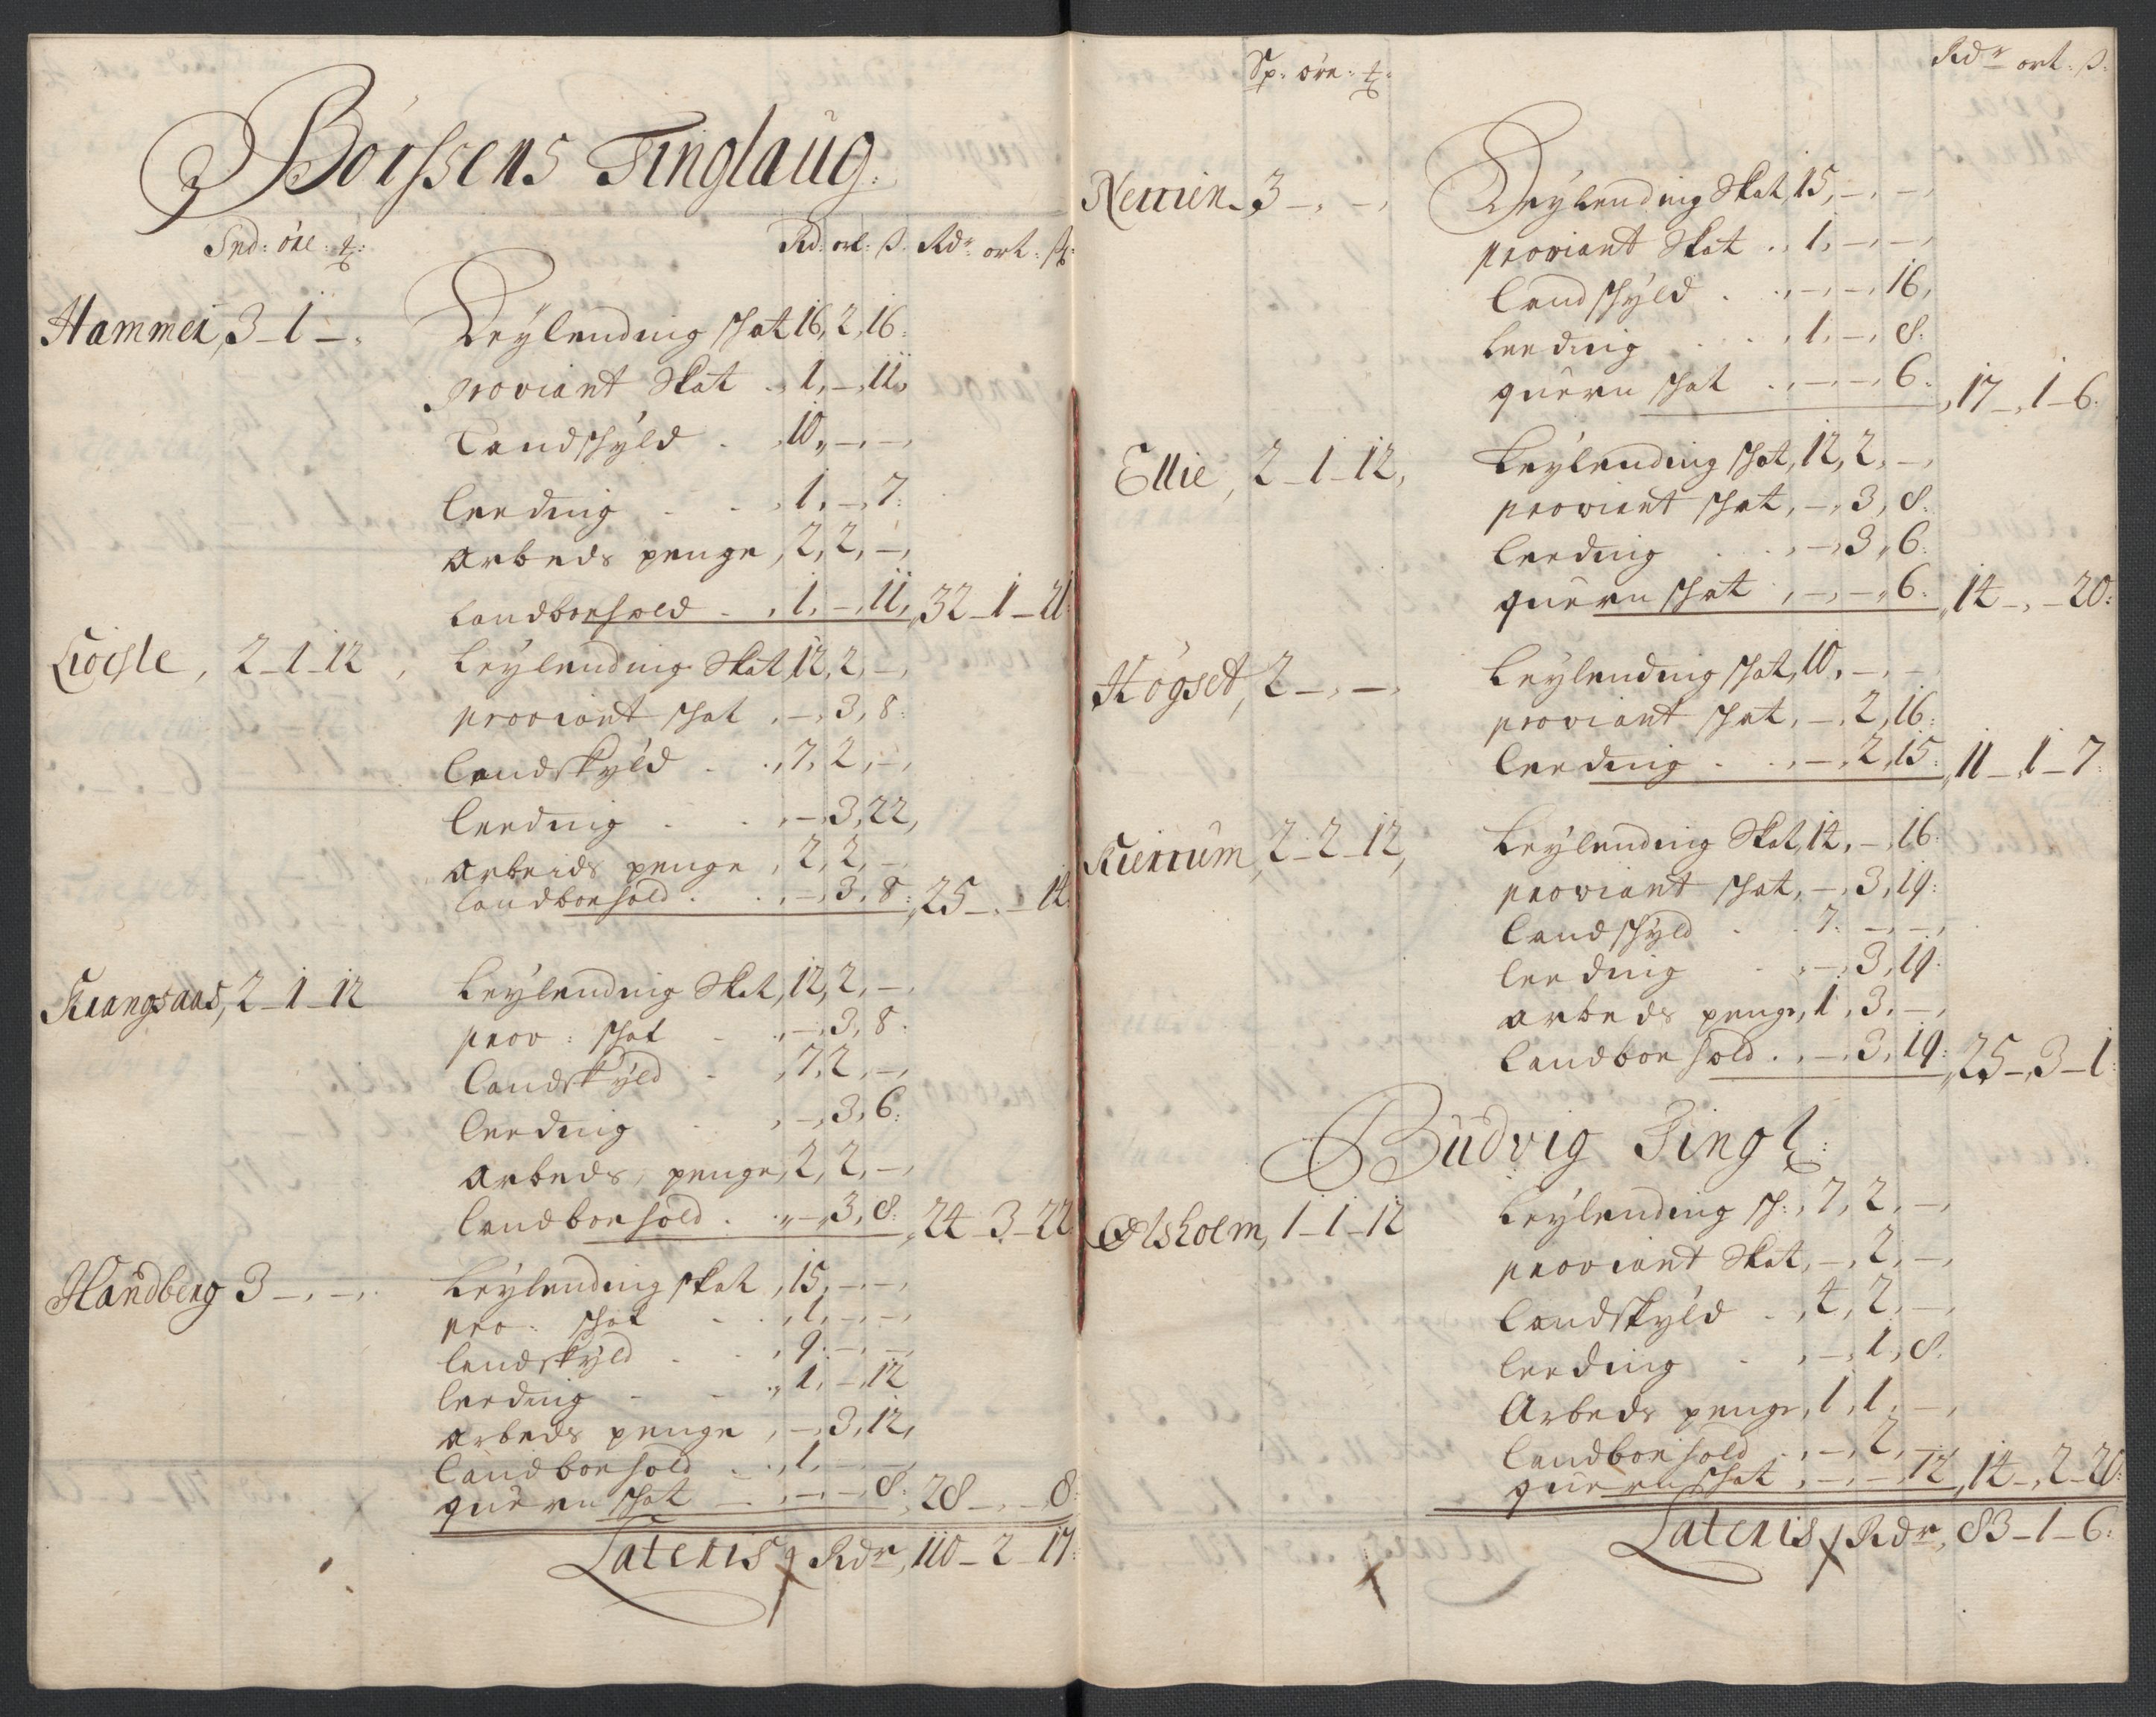 Börssens Tinglaug.
Spd: öre: ₶: Rd: ort: ß. Rdr ort: ß:
Hammer, 3-1-. Leylending skat 16, 2, 16:
proviant Skat . . 1, -, 11,
Landskyld . . 10, -, -,
Leeding . . . 1, -, 7:
Arbeds penge, 2, 2, -,
Landboehold . . 1, -, 11, 32-1-21:
Liöisle, 2-1-12, Leylending Skat 12, 2, -,
proviant skat . -, 3, 8:
Landskyld . . 7, 2, -,
Leeding . . . -, 3, 22,
Arbeids penge, 2, 2, -,
Landboehold . . -, 3, 8: 25-,-14:
Krangsaas, 2-1-12 Leylending Skat, 12, 2, -,
prov: skat . . -, 3, 8:
Landskyld . . 7, 2, -,
Leeding . . -, 3, 6:
Arbeds, penge, 2, 2, -,
Landboehold . . -, 3, 8: 24-3-22
Handberg 3-,-, Leylending skat, 15, -, -,
pro: skat . . 1, -, -,
Landskyld . . 9: -, -,
Leeding . . 1, -, 12
Arbeds penge, -, 3, 12,
Landboehold . . 1, -, -,
quern skat . . -, -, 8: 28-,-8:
Lateris Rdr, 110-2-17:
Sp: öre: ₶: Rdr ort: ß:
Nerrien, 3-,-, Leylending Skat, 15, -, -,
proviant Skat . . 1, -, -,
Landskyld . . -, -, 16,
Leeding . . . 1, -, 8:
quern skat . . -, -, 6: 17-,1-6:
Ellie, 2-1-12, Leylending skat, 12, 2, -,
proviant skat, -, 3, 8:
Leeding . . . -, 3, 6:
quern skat . -, -, 6: 14-,-20:
Högset, 2-,-, Leylending skat, 10, -, -
proviant skat, -, 2, 16:
Leeding . . . -, 2, 15: 11-,1-7:
Kierrum, 2-2-12, Leylending Skat, 14, -, 16:
proviant skat, -, 3, 19:
Landskyld . . 7: -, -,
Leeding . . -, 3, 19:
Arbeds penge, 1, 3, -,
Landboehold . . -, 3, 19: 25-,3-1:
Budvig Tingl:
Ølsholm, 1-1-12 Leylending sk:, 7, 2, -,
proviant Skat, -, 2, -,
Landskyld . . 4, 2, -,
Leeding . . -, 1, 8:
Arbeds penge, 1, 1, -,
Landboehold . . -, 2, -,
quern skat . -, -, 12, 14-,2-20:
Lateris Rdr, 83-1-6: